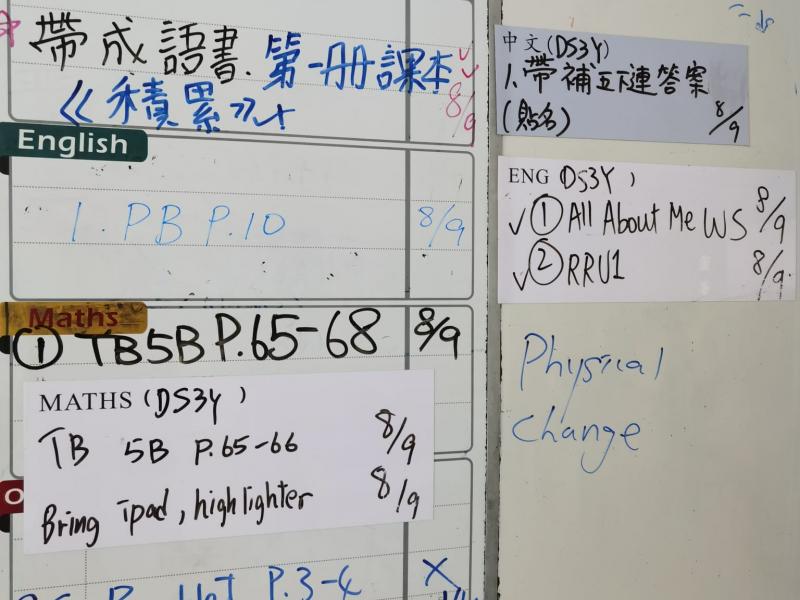 帶成語書.第一冊課本
《積累》
8/9
English
1. PB P.10 8/9
Maths
① TB5B P.65-68 8/9
MATHS (DS3Y)
TB 5B P.65-66 8/9
Bring ipad, highlighter 8/9
P.3-4 X
中文(DS3Y)
1.帶補五下連答案
(貼名) 8/9
ENG (DS3Y)
✓① All About Me WS 8/9
✓② RRU1 8/9
Physical
Change